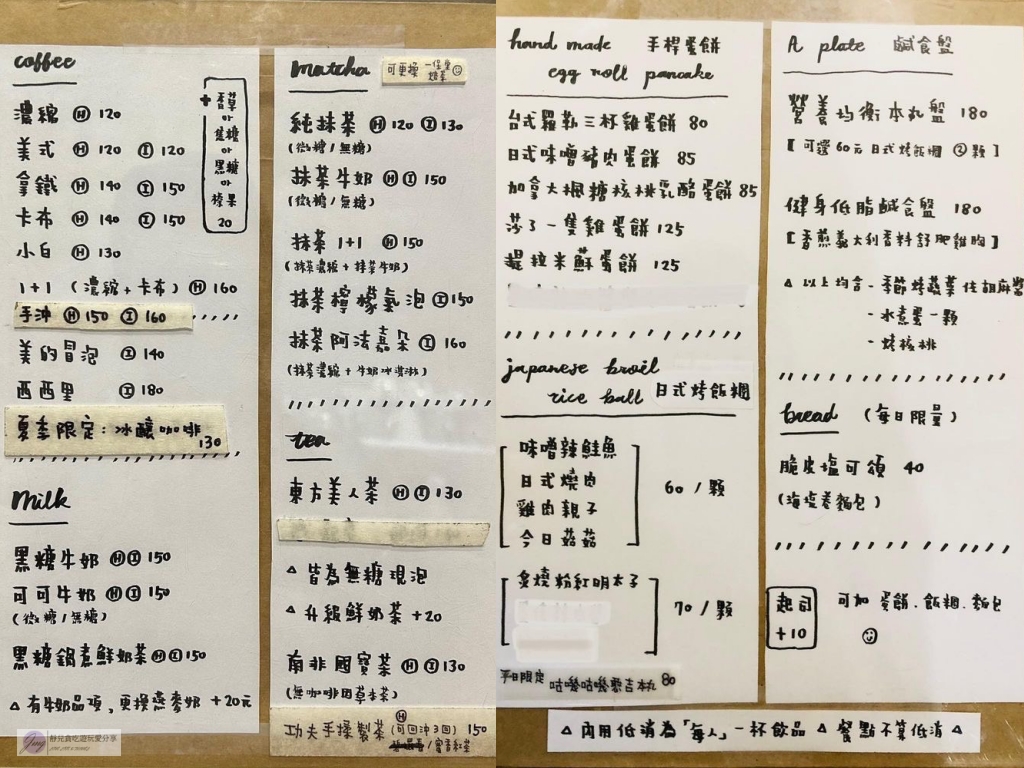 coffee
濃縮 Ⓗ 120
美式 Ⓗ 120 Ⓘ 120
拿鐵 Ⓗ 140 Ⓘ 150
卡布 Ⓗ 140 Ⓘ 150
小白 Ⓗ 130
1+1 (濃縮+卡布) Ⓗ 160
手沖 Ⓗ 150 Ⓘ 160
美的冒泡 Ⓘ 140
西西里 Ⓘ 180
夏季限定:冰釀咖啡 130
+
香草
or
焦糖
or
黑糖
or
榛果
20
Milk
黑糖牛奶 ⒽⒾ 150
可可牛奶 ⒽⒾ 150
(微糖/無糖)
黑糖鍋煮鮮奶茶ⒽⒾ150
△ 有牛奶品項,更換燕麥奶 +20元
matcha
可更換
純抹茶 Ⓗ 120 Ⓘ 130
(微糖/無糖)
抹茶牛奶 ⒽⒾ 150
(微糖/無糖)
抹茶 1+1 Ⓗ 150
(抹茶濃縮+抹茶牛奶)
抹茶檸檬氣泡 Ⓘ150
抹茶阿法嘉朵 Ⓘ 160
(抹茶濃縮+牛奶冰淇淋)
tea
東方美人茶 ⒽⒾ 130
△ 皆為無糖現泡
△ 升級鮮奶茶 +20
南非國寶茶 ⒽⒾ130
(無咖啡因草本茶)
功夫手揉製茶 Ⓗ (可回沖3回) 150
/蜜香紅茶
hand made 手桿蛋餅
egg roll pancake
台式羅勒三杯雞蛋餅 80
日式味噌豬肉蛋餅 85
加拿大楓糖核桃乳酪蛋餅 85
莎了一隻雞蛋餅 125
提拉米蘇蛋餅 125
japanese broil
rice ball 日式烤飯糰
味噌辣鮭魚
日式燒肉
雞肉親子
今日菇菇
60/顆
炙燒粉紅明太子
70/顆
平日限定 咕嘰咕嘰藜吉本丸 80
A plate 鹹食盤
營養均衡本丸盤 180
[可選60元日式烤飯糰 ②顆]
健身低脂鹹食盤 180
[香煎義大利香料舒肥雞胸]
△ 以上均含-季節烤蔬菜佐胡麻醬
-水煮蛋一顆
-烤核桃
bread (每日限量)
脆皮塩可頌 40
(海塩卷麵包)
起司
+10
可加 蛋餅.飯糰.麵包
☺
△ 內用低消為「每人」一杯飲品 △ 餐點不算低消 △
靜兒貪吃遊玩愛分享